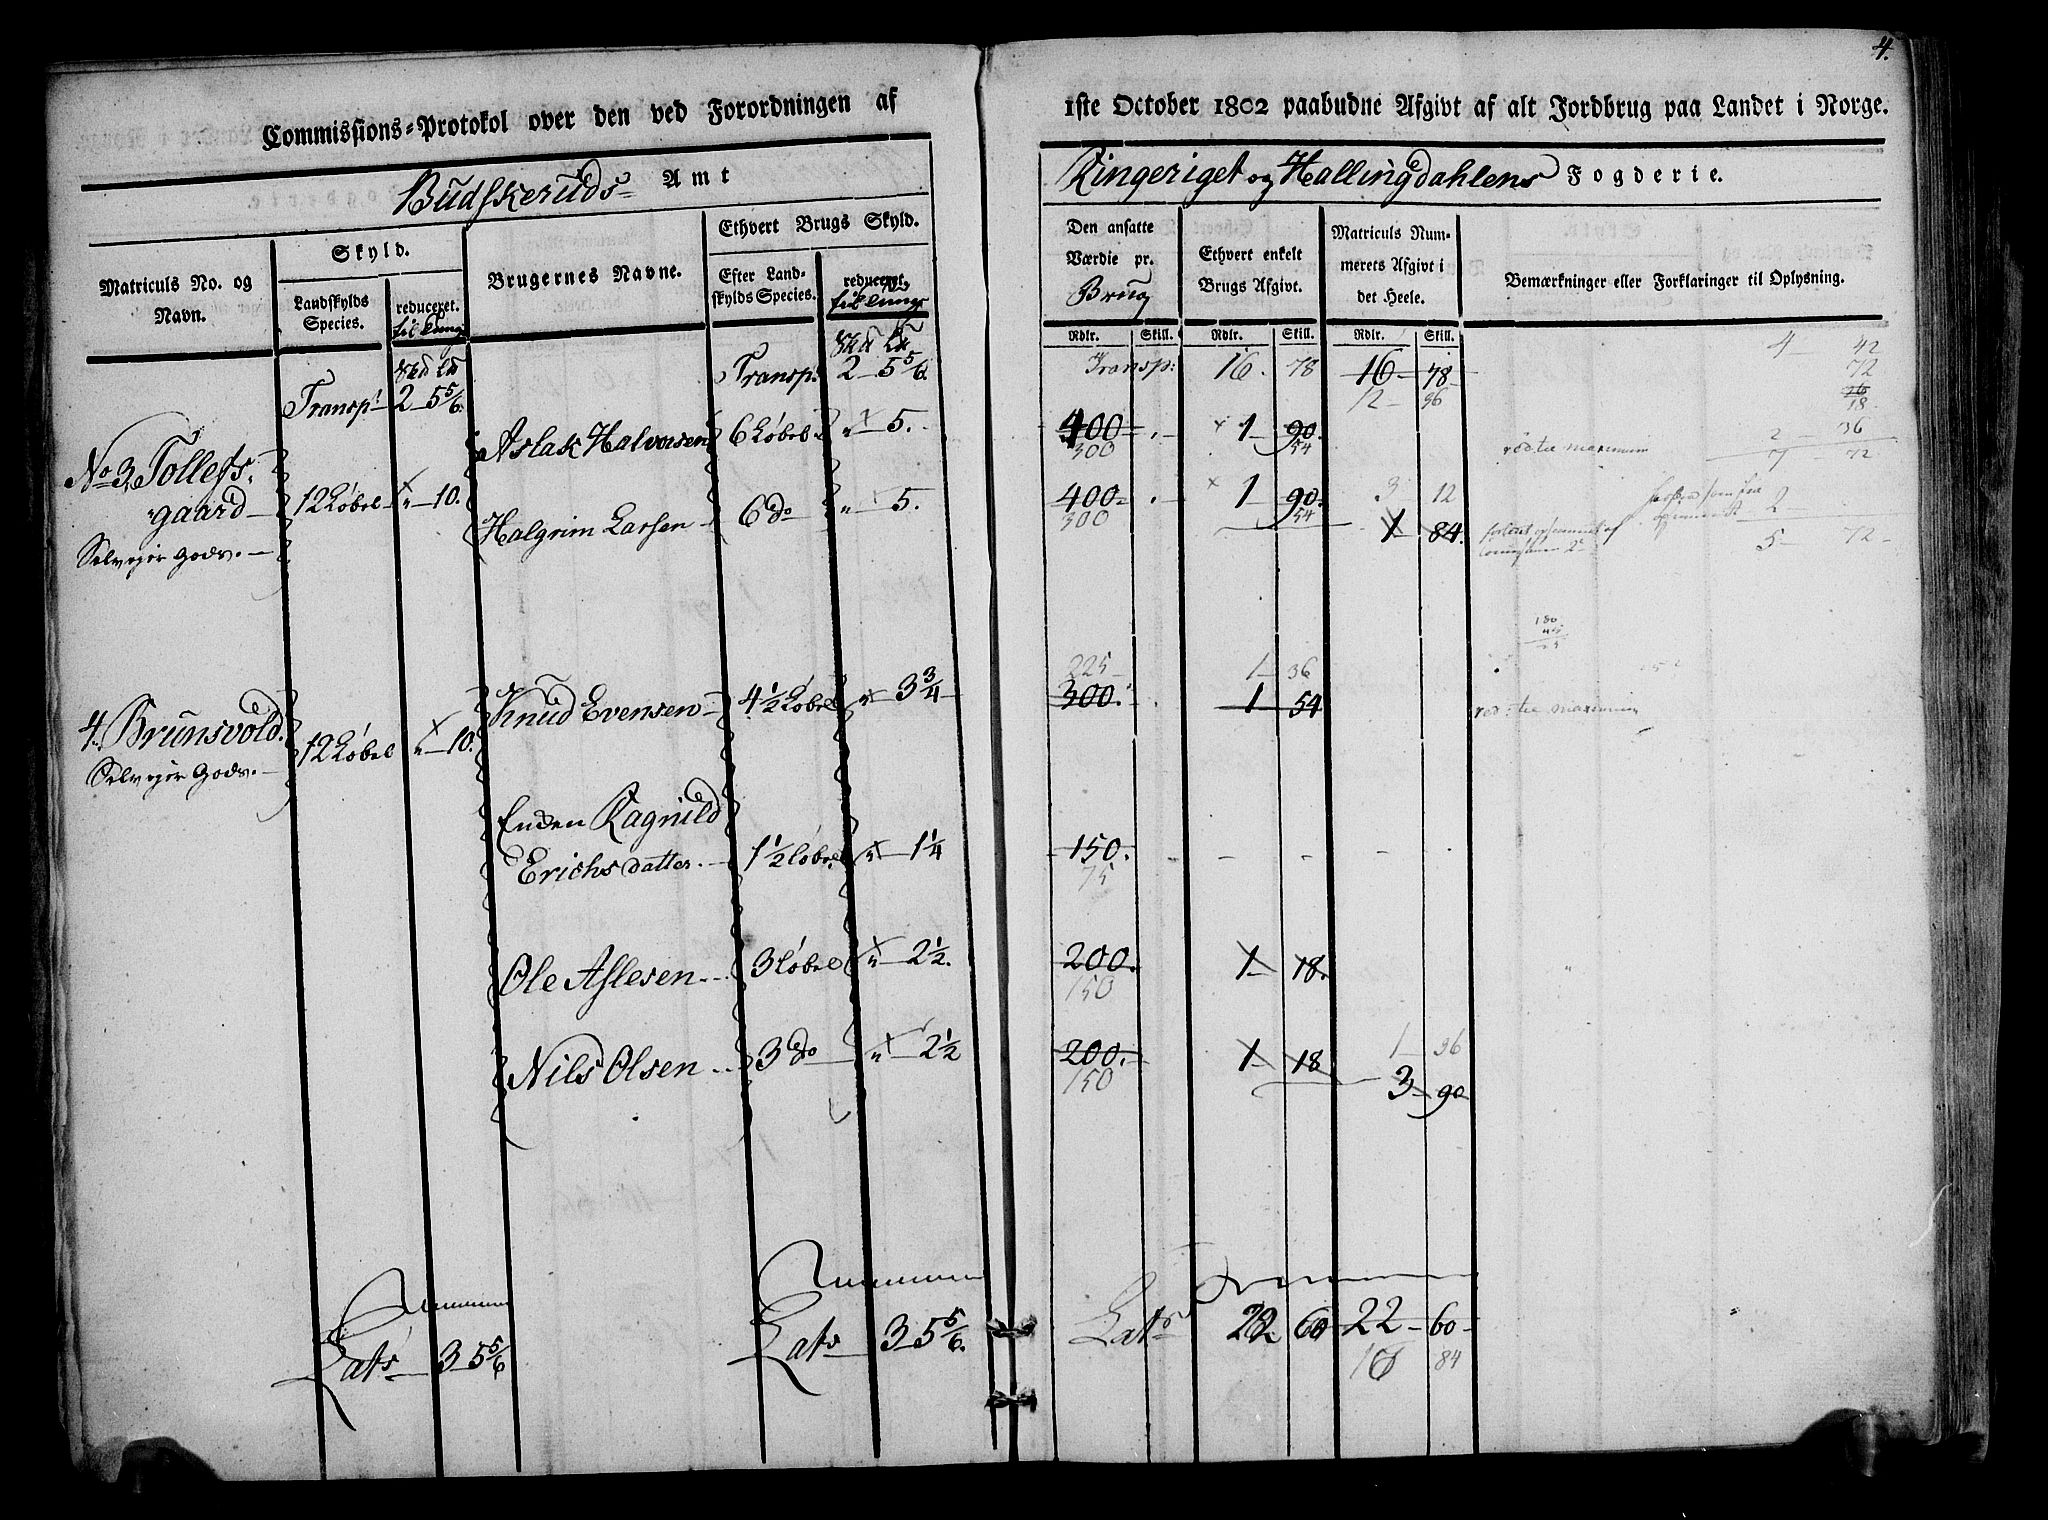 4.
Commissions-Protokol over den ved Forordningen af
1ste October 1802 paabudne Afgivt af alt Jordbrug paa Landet i Norge.
Budskeruds Amt
Ringeriget og Hallingdahlens Fogderie.
Matriculs No. og Navn.
Skyld.
Landskylds Species.
reduceret.
Brugernes Navne.
Ethvert Brugs Skyld.
Efter Landskylds Species.
reduceret.
Den ansatte Værdie pr. Brug
Ethvert enkelt Brugs Afgivt.
Matriculs Nummerets Afgivt i det Heele.
Bemærkninger eller Forklaringer til Oplysning.
Rdlr. Skill. Rdlr. Skill. Rdlr. Skill.
Transp. 2 5 5/6 Transp. 2 5 5/6. Transp: 16. 78 16 78
12 96
4 42
72
18
No 3, Tollefsgaard 12 Løbel " 10.
Selveiergods.
Aslak Halvorsen 6 Løbel " 5. 400 1 90.
300 54
maximum
Halgrim Larsen 6 do " 5. 400 1 90. 3 12
300 54 1 84.
5 72
4. Brunsvold. 12 Løbel " 10.
Selveiergods.
225 1 36
Knud Evensen 4 1/2 Løbel " 3 3/4 300. 1 54
maximum
Enken Ragnild
Erichsdatter. 1 1/2 Løbel " 1 1/4 150.
75
Ole Aslesen 3 Løbel " 2 1/2. 200. 1 18.
150
Nils Olsen 3 do " 2 1/2 200. 1 18 1 36
150 3 90
Lats 3 5 5/6 Lats 3 5 5/6. Lats 22 60 22 60
84